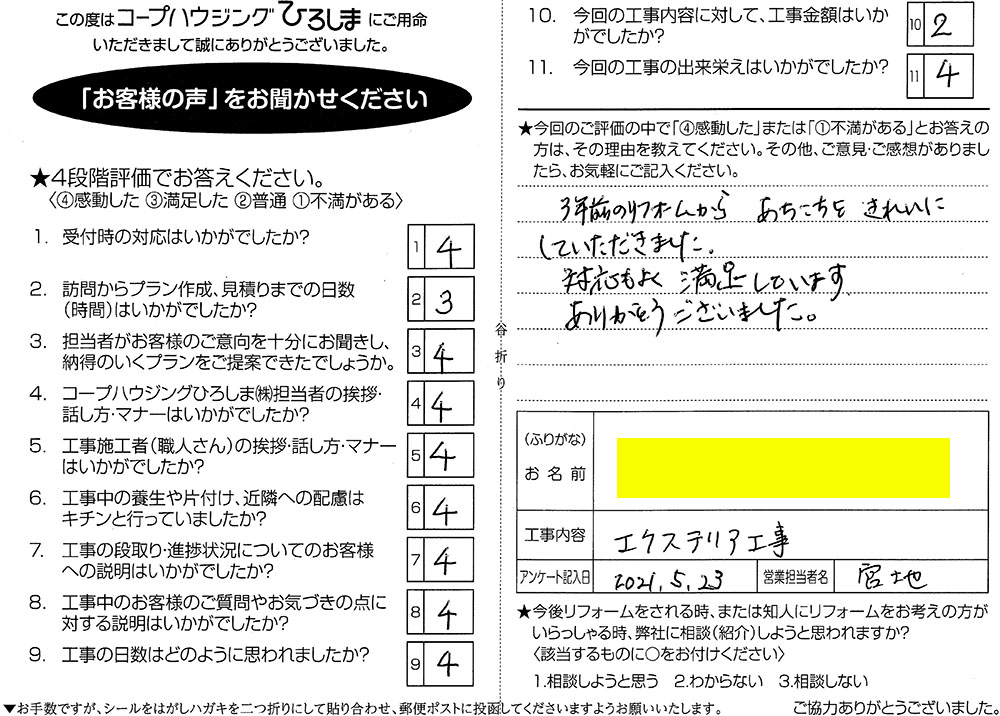 この度はコープハウジングひろしまにご用命
いただきまして誠にありがとうございました。
「お客様の声」をお聞かせください
★4段階評価でお答えください。
〈④感動した ③満足した ②普通 ①不満がある〉
1. 受付時の対応はいかがでしたか?
1 4
2. 訪問からプラン作成、見積りまでの日数
(時間)はいかがでしたか?
2 3
3. 担当者がお客様のご意向を十分にお聞きし、
納得のいくプランをご提案できたでしょうか。
3 4
4. コープハウジングひろしま㈱担当者の挨拶・
話し方・マナーはいかがでしたか?
4 4
5. 工事施工者(職人さん)の挨拶・話し方・マナー
はいかがでしたか?
5 4
6. 工事中の養生や片付け、近隣への配慮は
キチンと行っていましたか?
6 4
7. 工事の段取り・進捗状況についてのお客様
への説明はいかがでしたか?
7 4
8. 工事中のお客様のご質問やお気づきの点に
対する説明はいかがでしたか?
8 4
9. 工事の日数はどのように思われましたか?
9 4
▼お手数ですが、シールをはがしハガキを二つ折りにして貼り合わせ、郵便ポストに投函してくださいますようお願いいたします。
谷折り
10. 今回の工事内容に対して、工事金額はいか
がでしたか?
10 2
11. 今回の工事の出来栄えはいかがでしたか?
11 4
★今回のご評価の中で「④感動した」または「①不満がある」とお答えの
方は、その理由を教えてください。その他、ご意見・ご感想がありまし
たら、お気軽にご記入ください。
3年前のリフォームから あちこちを きれいに
していただきました。
対応もよく 満足しています
ありがとうございました。
(ふりがな)
お名前
工事内容 エクステリア工事
アンケート記入日 2021.5.23 営業担当者名 宮地
★今後リフォームをされる時、または知人にリフォームをお考えの方が
いらっしゃる時、弊社に相談(紹介)しようと思われますか?
〈該当するものに○をお付けください〉
1.相談しようと思う 2.わからない 3.相談しない
ご協力ありがとうございました。